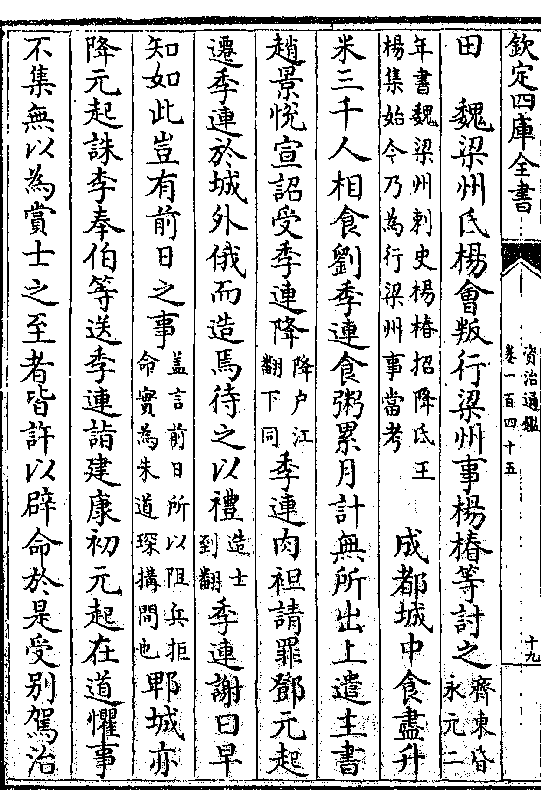 欽定四庫全書
資治通鑑
卷一百四十五
十九
田　魏梁州氐楊會叛行梁州事楊椿等討之齊東昏永元二
年書魏梁州刺史楊椿招降氐王楊集始今乃為行梁州事當考　成都城中食盡升
米三千人相食劉季連食粥累月計無所出上遣主書
趙景悅宣詔受季連降降户江翻下同季連肉袒請罪鄧元起
遷季連於城外俄而造焉待之以禮造士到翻季連謝曰早
知如此豈有前日之事盖言前日所以阻兵拒命實為朱道琛搆間也郫城亦
降元起誅李奉伯等送季連詣建康初元起在道懼事
不集無以為賞士之至者皆許以辟命於是受别駕治